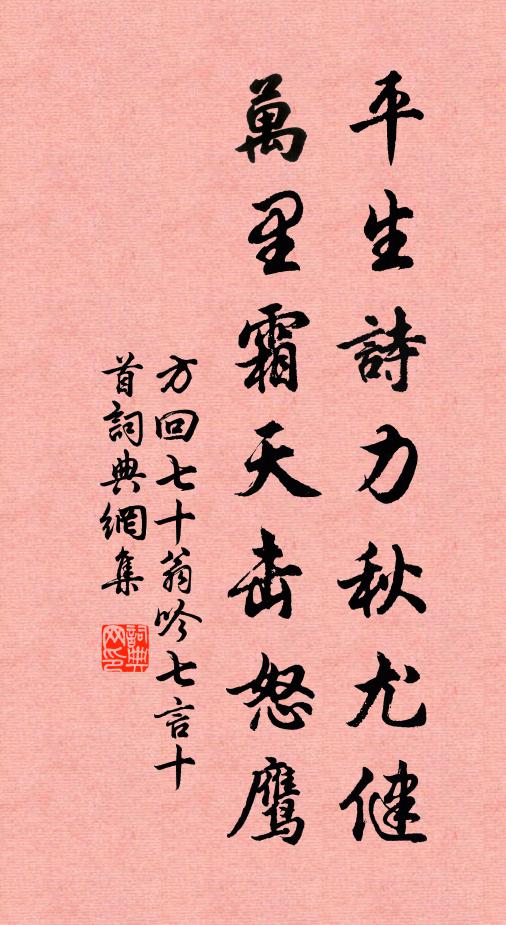 平生詩力秋尤健
萬里霜天击怒鹰
方回七十翁吟七言十
首詞典網集
詞典
网印